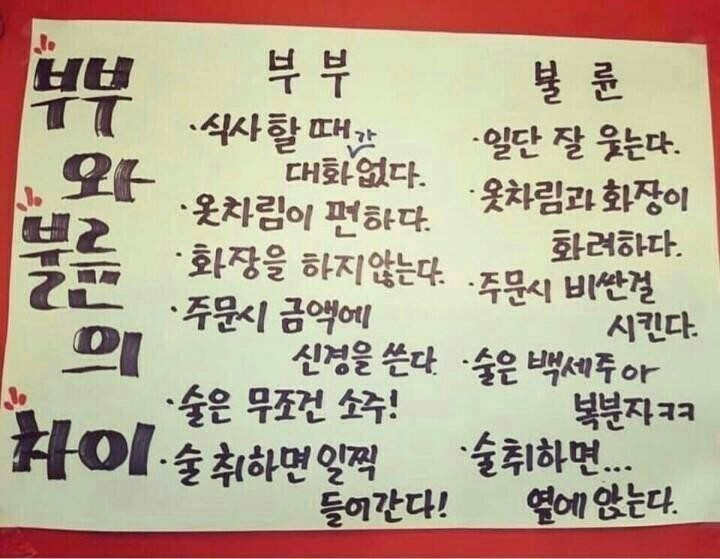 부부
와
불륜
의
차이
부부
·식사할때
대화가없다.
·옷차림이 편하다.
·화장을 하지않는다.
·주문시 금액에
신경을 쓴다
·술은 무조건 소주!
·술 취하면 일찍
들어간다!
불륜
·일단 잘 웃는다.
·옷차림과 화장이
화려하다.
·주문시 비싼걸
시킨다.
·술은 백세주 or
복분자ㅋㅋ
·술취하면...
옆에 앉는다.